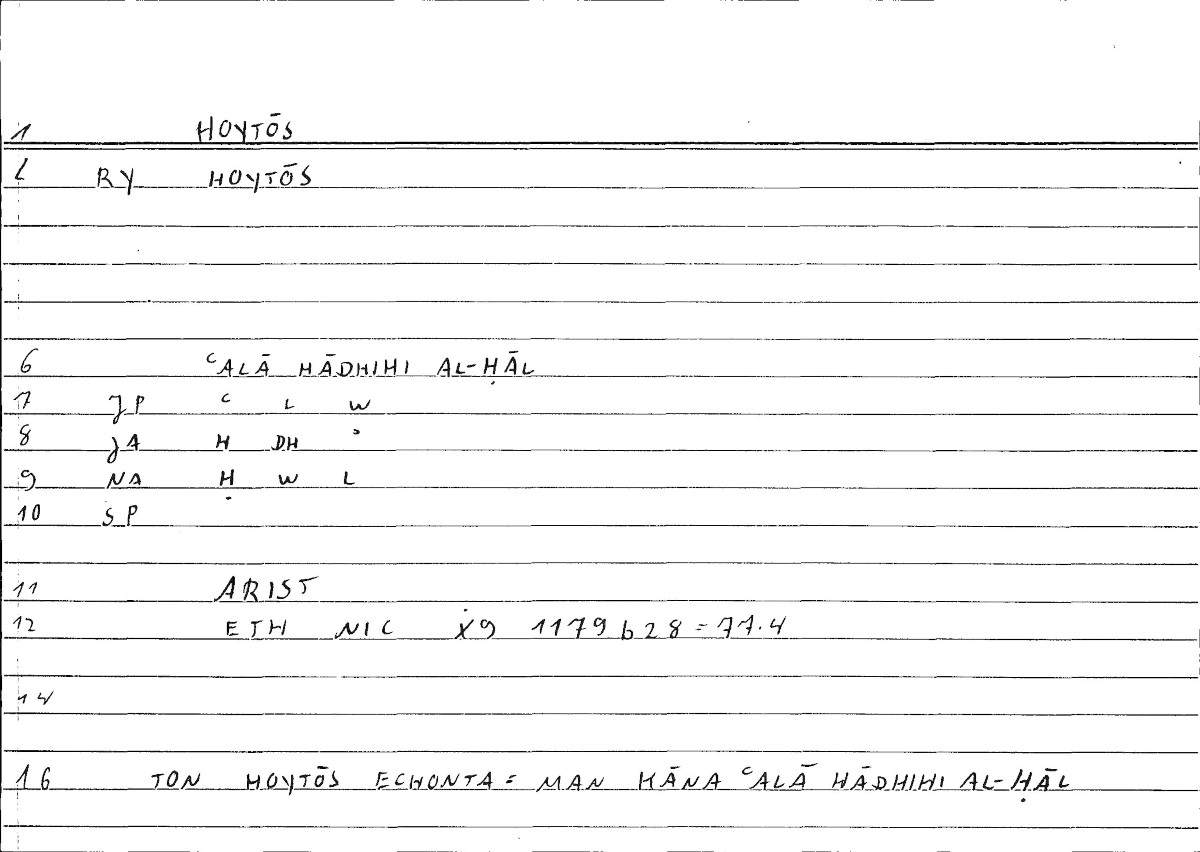 1 HOYTŌS
2 RY HOYTŌS
6 ʿALĀ HĀDHIHI AL-ḤĀL
7 JP ʿ L W
8 JA H DH ʾ
9 NA Ḥ W L
10 SP
11 ARIST
12 ETH NIC X9 1179 b 28 = 77.4
14
16 TON HOYTŌS ECHONTA = MAN KĀNA ʿALĀ HĀDHIHI AL-ḤĀL